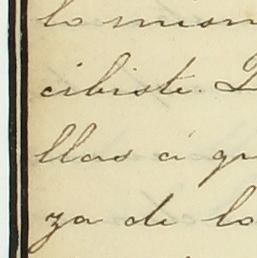 lo mism
cibiste.
llas á qu
za de lo